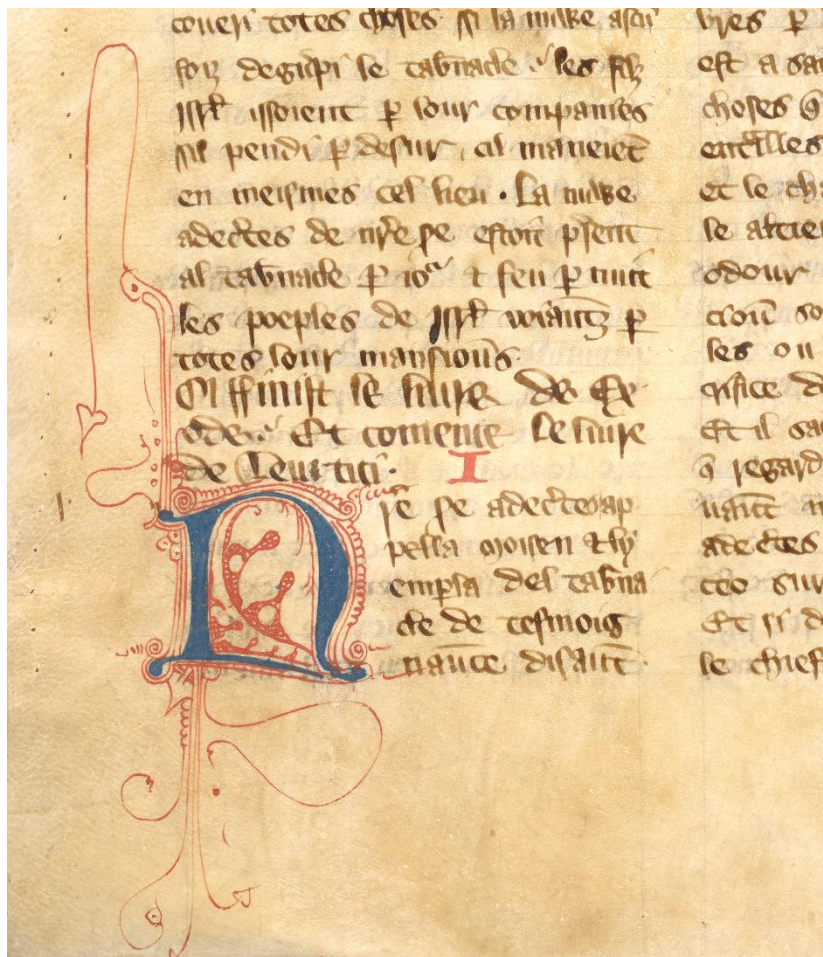 coueri totes choses si la nuwe ascu
soiz degurpi le tabnacle les filz
Isrl issoient p lour companies
sil pendi p desur, cil maneiet
en meismes cel lieu. La nuwe
adectes de nre se estoit psent
al tabnacle p ior & feu p nuit
les poeples de Isrl voiantz p
totes lour mansions.
Ci ffinist le liure de Ex
ode. Et comence le liure
de Leuitici. I
Nre se adectes ap
pella moisen & ly
empla del tabna
cle de tesmoig
naunce disaunt.
bres p
est a sa
choses q
entrilles
et le cha
le alter
odour
cioun so
les ou
crifice de
Et il sa
q regard
uaunt n
adectes
ceo sur
Et si de
le chief